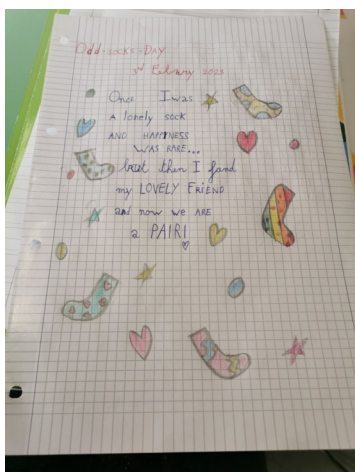 Odd-socks-Day
3rd February 2023
Once I was
a lonely sock
AND HAPPINESS
WAS RARE...
but then I fand
my LOVELY FRIEND
and now we ARE
a PAIR!